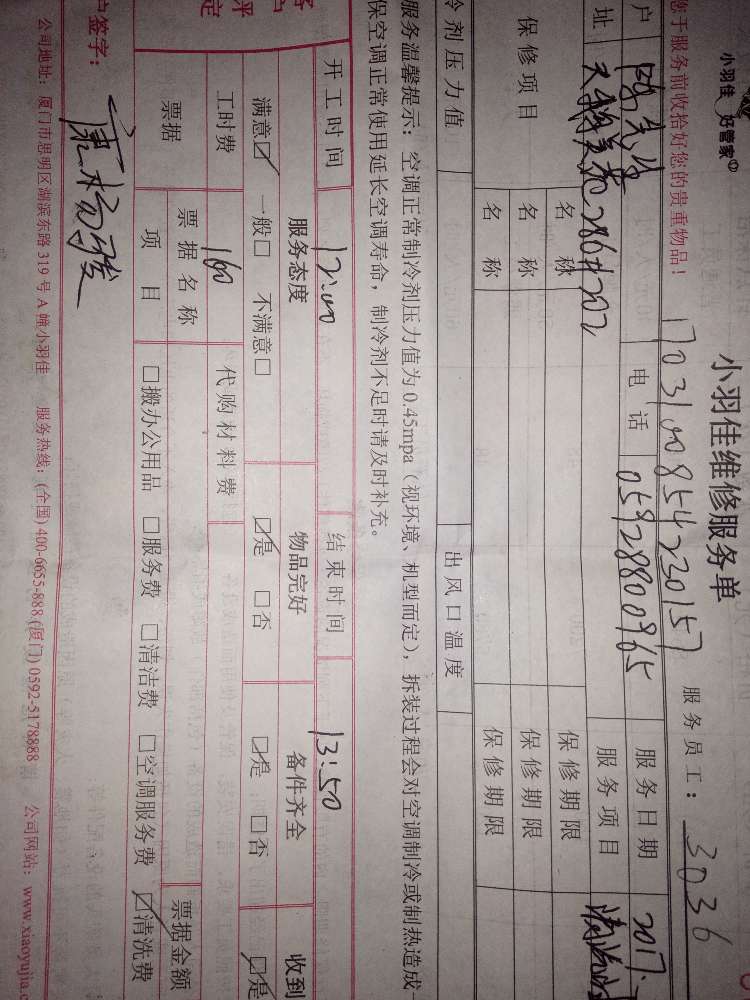 小羽佳 好管家
小羽佳维修服务单
服务员工：3036
您于服务前收拾好您的贵重物品！
1703100854220157
户 电话 05928800965 服务日期 2017.
址 286#202 服务项目
保修项目 名称 保修期限
名称 保修期限
名称 保修期限
冷剂压力值 出风口温度
服务温馨提示：空调正常制冷剂压力值为0.45mpa（视环境、机型而定），拆装过程会对空调制冷或制热造成一
保空调正常使用延长空调寿命，制冷剂不足时请及时补充。
开工时间 12:00 结束时间 13:50
服务态度 物品完好 备件齐全 收到
满意☑ 一般□ 不满意□ ☑是 □否 ☑是 □否 ☑是
评
定
工时费 160 代购材料费
票据 票据名称 票据金额
项目 □搬办公用品 □服务费 □清洁费 □空调服务费 ☑清洗费
户签字：
公司地址：厦门市思明区湖滨东路319号A幢小羽佳 服务热线：(全国) 400-6655-888 (厦门) 0592-5178888 公司网站：www.xiaoyujia.c